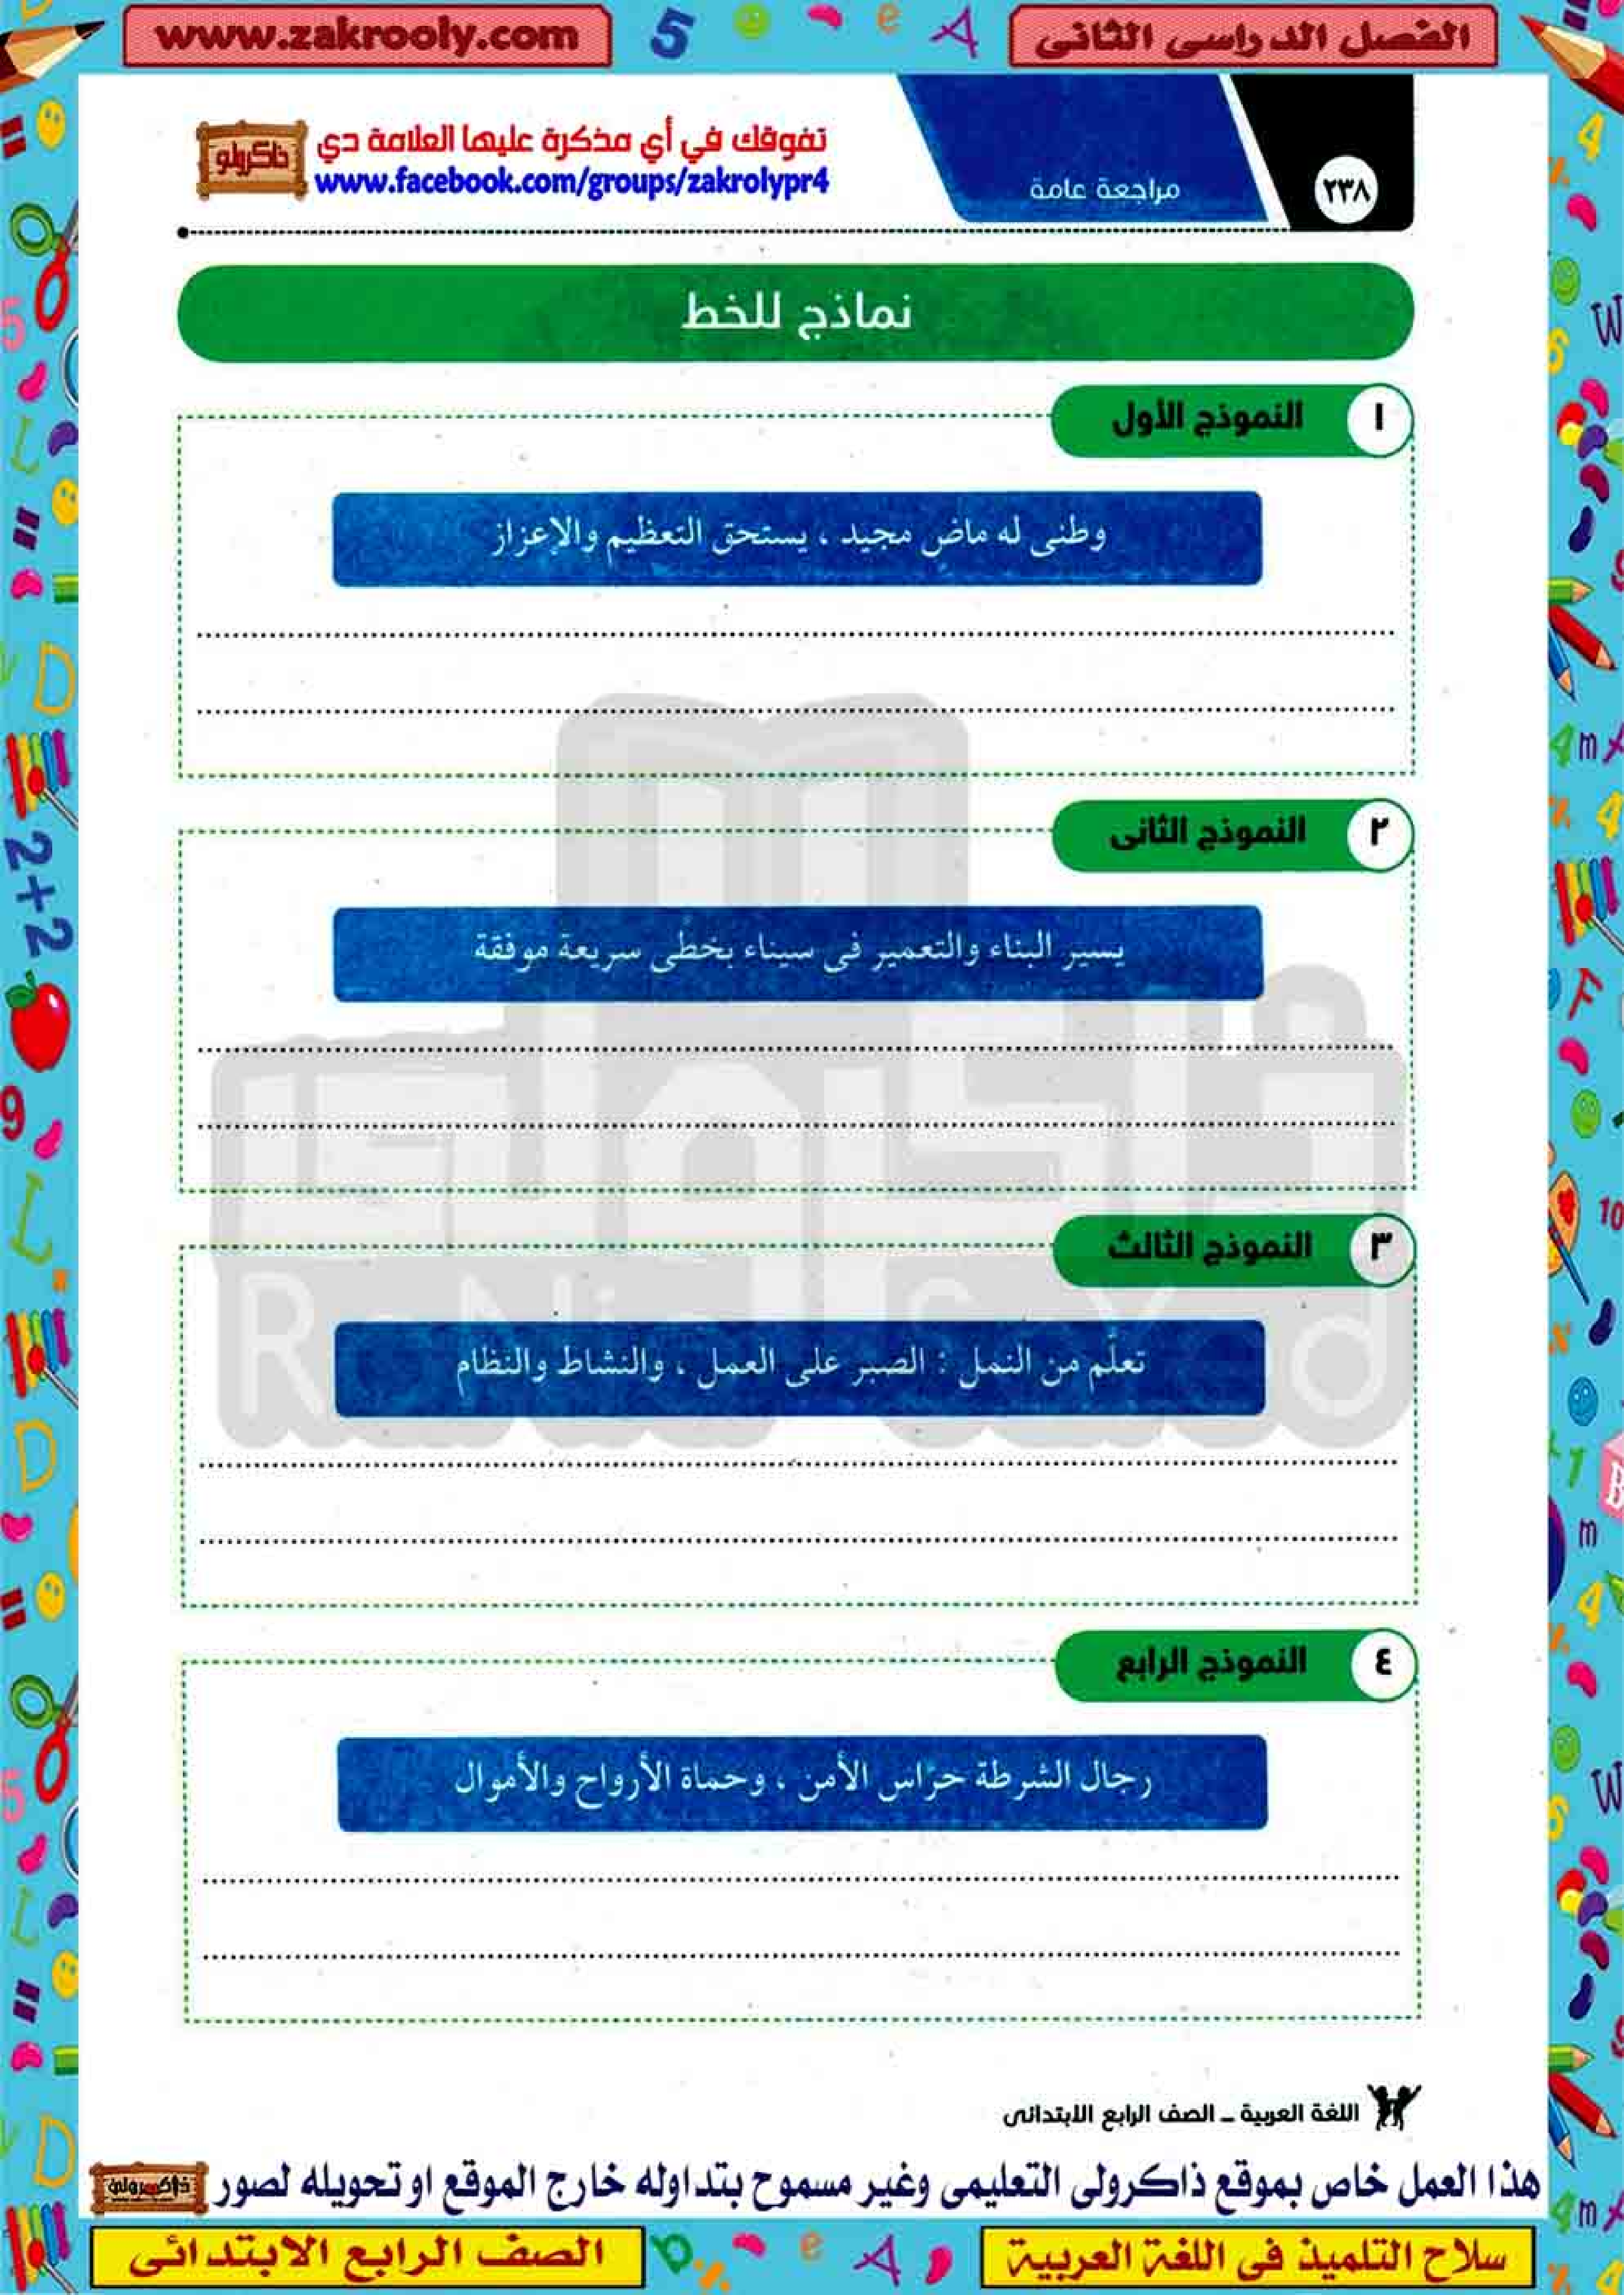 www.zakrooly.com
الفصل الدراسى الثانى
تفوقك في أي مذكرة عليها العلامة دي
ذاكرولي
www.facebook.com/groups/zakrolypr4
مراجعة عامة
٢٣٨
نماذج للخط
١ النموذج الأول
وطنى له ماض مجيد ، يستحق التعظيم والإعزاز
٢ النموذج الثانى
يسير البناء والتعمير فى سيناء بخطًى سريعة موفقة
٣ النموذج الثالث
تعلَّم من النمل : الصبر على العمل ، والنشاط والنظام
٤ النموذج الرابع
رجال الشرطة حرّاس الأمن ، وحماة الأرواح والأموال
اللغة العربية ــ الصف الرابع الابتدائى
هذا العمل خاص بموقع ذاكرولى التعليمى وغير مسموح بتداوله خارج الموقع او تحويله لصور
ذاكرولى
سلاح التلميذ فى اللغة العربية
الصف الرابع الابتدائى